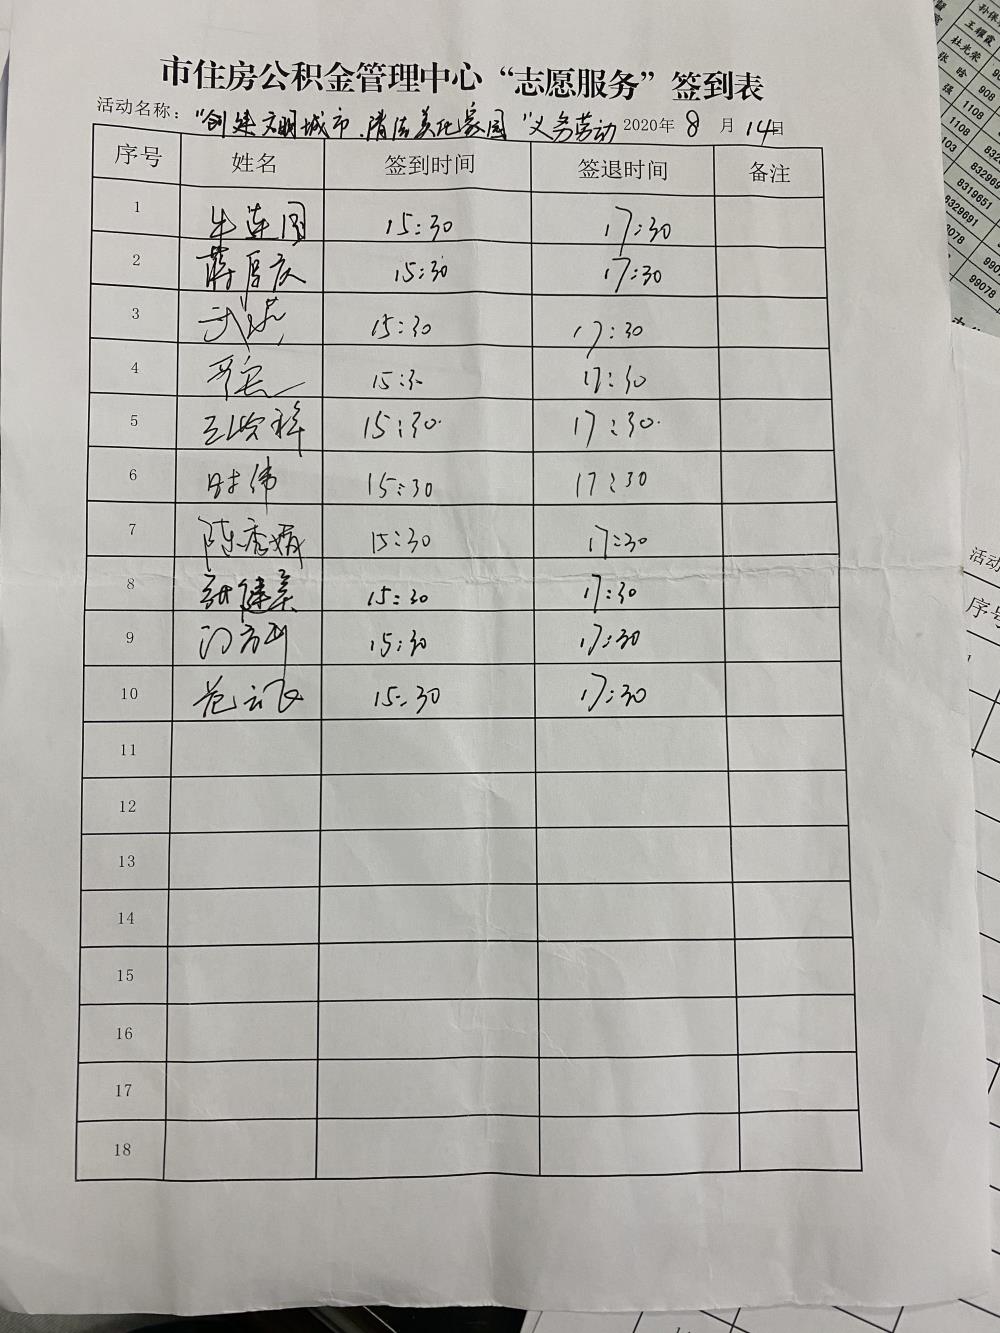 市住房公积金管理中心“志愿服务”签到表
活动名称：“创建文明城市、清洁美化家园”义务劳动 2020年 8 月 14日
序号 姓名 签到时间 签退时间 备注
1 牛连国 15:30 17:30
2 蒋厚庆 15:30 17:30
3 15:30 17:30
4 15:30 17:30
5 15:30 17:30
6 时伟 15:30 17:30
7 陈秀娟 15:30 17:30
8 15:30 17:30
9 15:30 17:30
10 范云飞 15:30 17:30
11
12
13
14
15
16
17
18
孙保
王雅霞
杜光荣
张 晗
强
908
1108
1108
103
8329
832969
8319651
8329691
99078
活动
序号